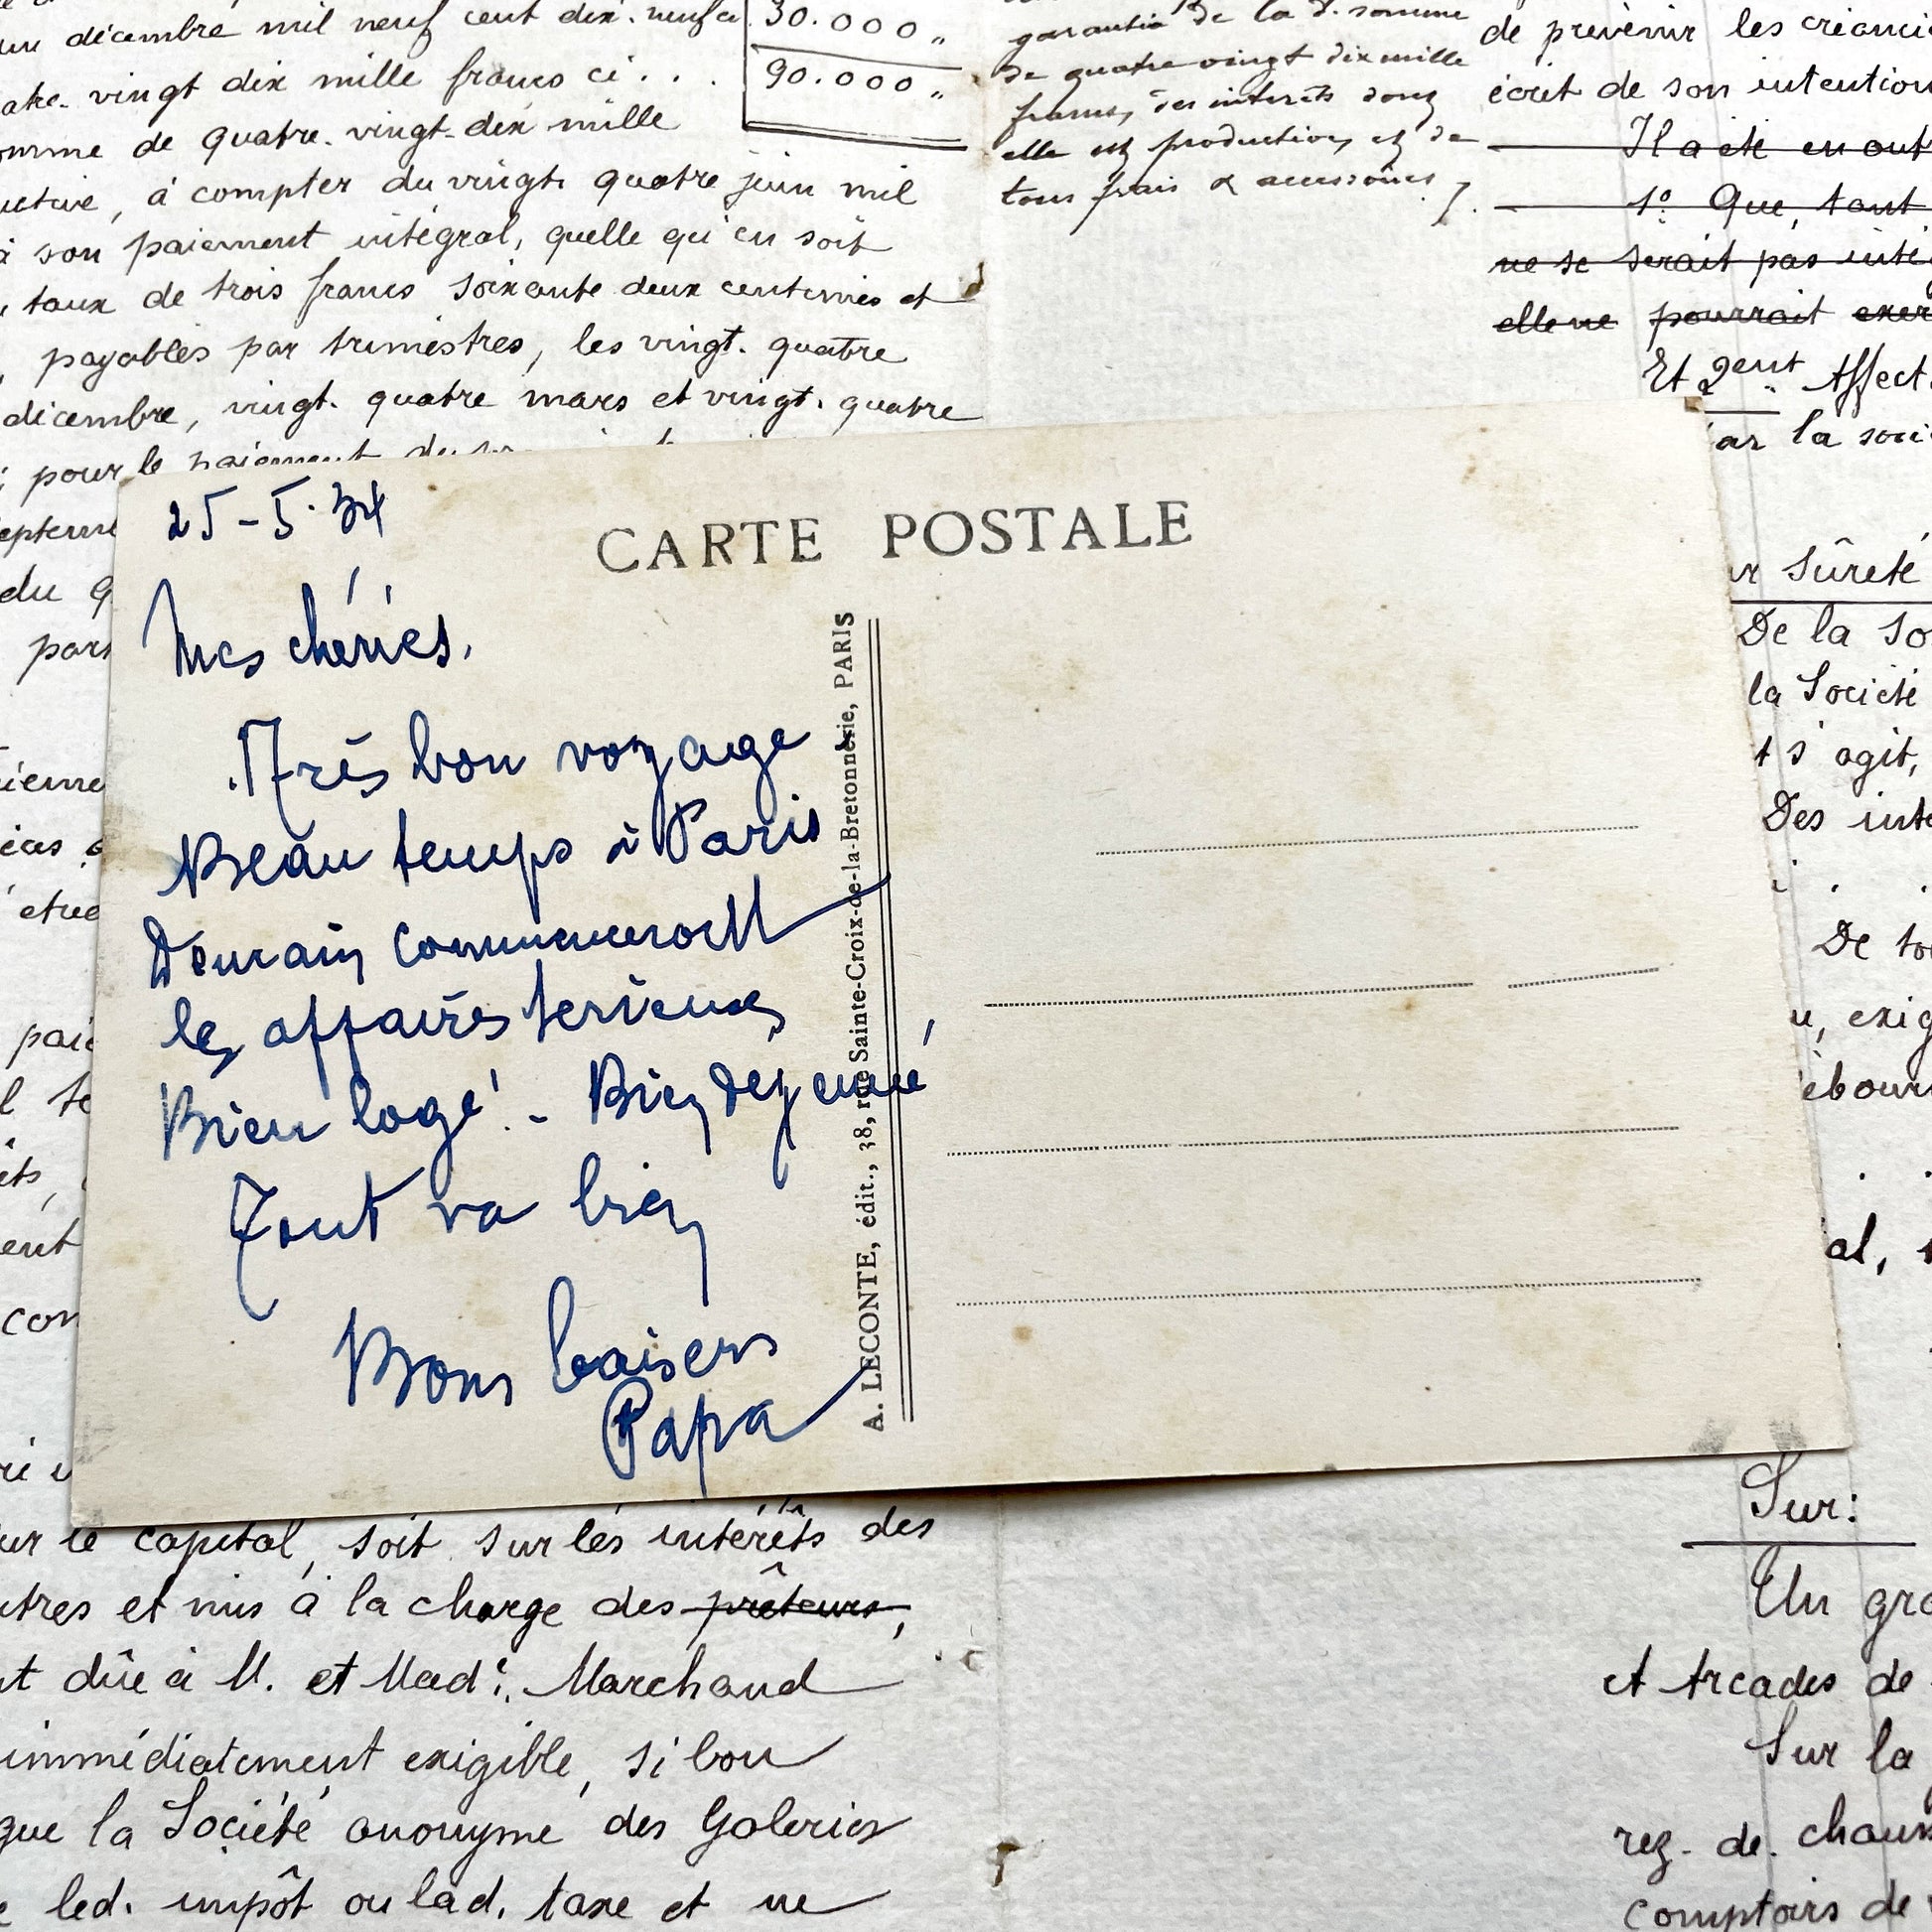 décembre mil neuf cent dix-neuf ci
30.000 „
vingt dix mille francs ci . . .
90.000 „
de quatre-vingt-dix mille
, à compter du vingt-quatre juin mil
son paiement intégral, quelle qu'en soit
taux de trois francs soixante deux centimes et
payables par trimestres, les vingt-quatre
décembre, vingt-quatre mars et vingt-quatre
pour le paiement du
du
garantie de la d. somme
de quatre vingt dix mille
francs, des intérêts dont
elle est production et de
tous frais & accessoires ./.
de prévenir les
écrit de son intention
Il a été en outr
1º Que, tant
ne se serait pas
elle ne pourrait
Et 2ent Affect
la
sûreté
De la
la Société
s'agit,
Des
De
25-5-34
CARTE POSTALE
Mes chéries,
Très bon voyage
Beau temps à Paris
Demain commenceront
les affaires serieuses
Bien logé! - Bien déjeuné
Tout va bien
Bons baisers
Papa
A. LECONTE, édit., 38, rue Sainte-Croix-de-la-Bretonnerie, PARIS
le capital, soit sur les intérêts des
et mis à la charge des prêteurs,
dûe à M. et Mad.e Marchand
immédiatement exigible, si bon
que la Société anonyme des Galeries
led. impôt ou lad. taxe et ne
Sur:
Un
et Arcades de
Sur la
rez-de-chaus
comptoirs de